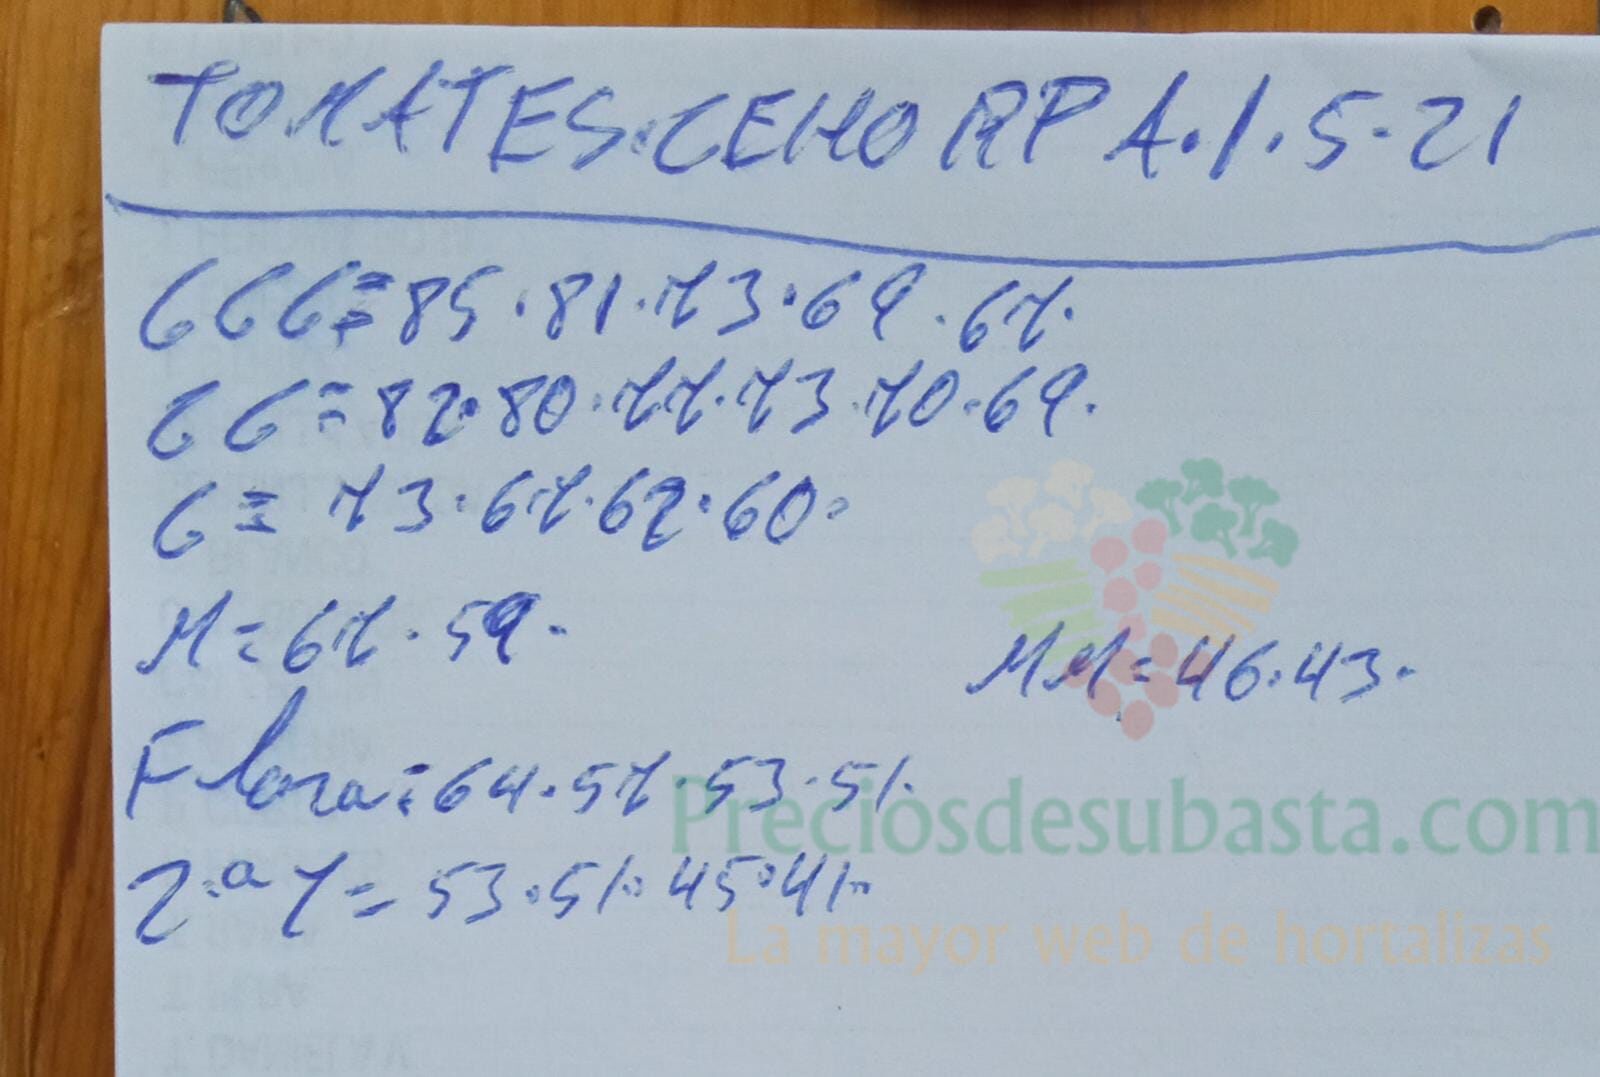 TOMATES.CEHORPA.1.5-21
GGG=85.81.73.69.67.
GG=82.80.77.73.70.69.
G= 73.67.62.60.
M=67.59.
MM=46.43.
Flora=64.57.53.51.
2.ª Y=53.51.45.41.
Preciosdesubasta.com
La mayor web de hortalizas